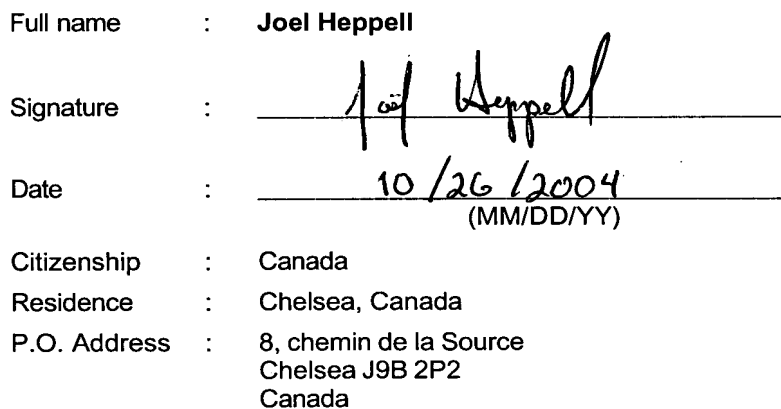 Full name : Joel Heppell
Signature : Joël Heppell
Date : 10/26/2004
(MM/DD/YY)
Citizenship : Canada
Residence : Chelsea, Canada
P.O. Address : 8, chemin de la Source
Chelsea J9B 2P2
Canada